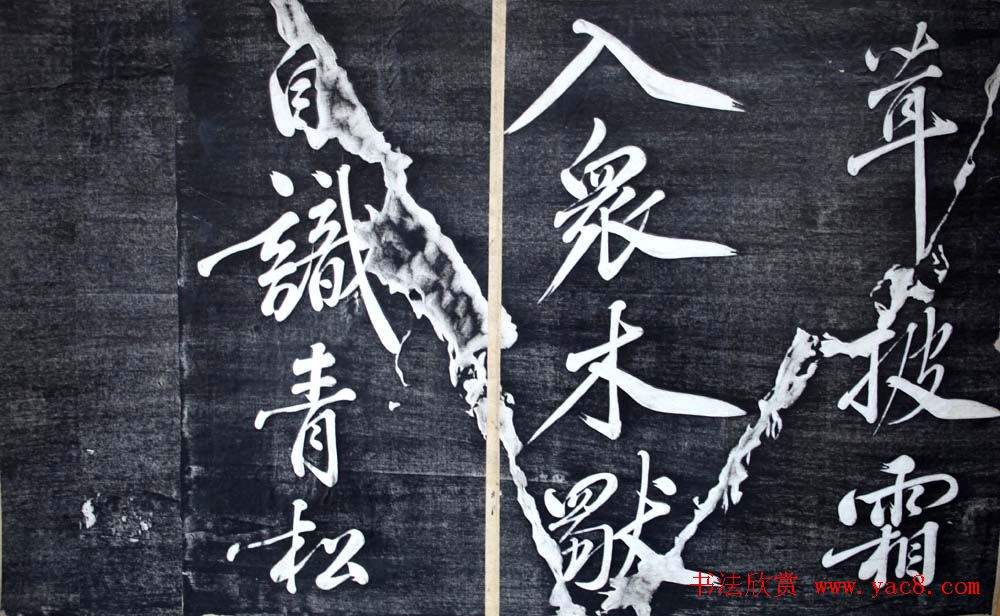 茸披霜
入眾木獨
自識青松
书法欣赏 www.yac8.com